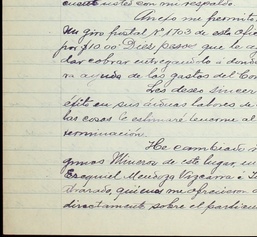 cuente ustes con mi respaldo.
Anexo me permito
un giro postal Nº 1763 de esta ofici
por $10.00 Diez pesos que le a
dar cobrar entregandolo a donde
ayuda de los gastos del Con
Les deseo sincer
éxito en sus árduas labores de
las cosas le estimaré tenerme al
terminación.
He cambiado
Mineros de este lugar,
Ezequiel Mendoza Vizcarra
quienes me ofrecieron
directamente sobre el particu